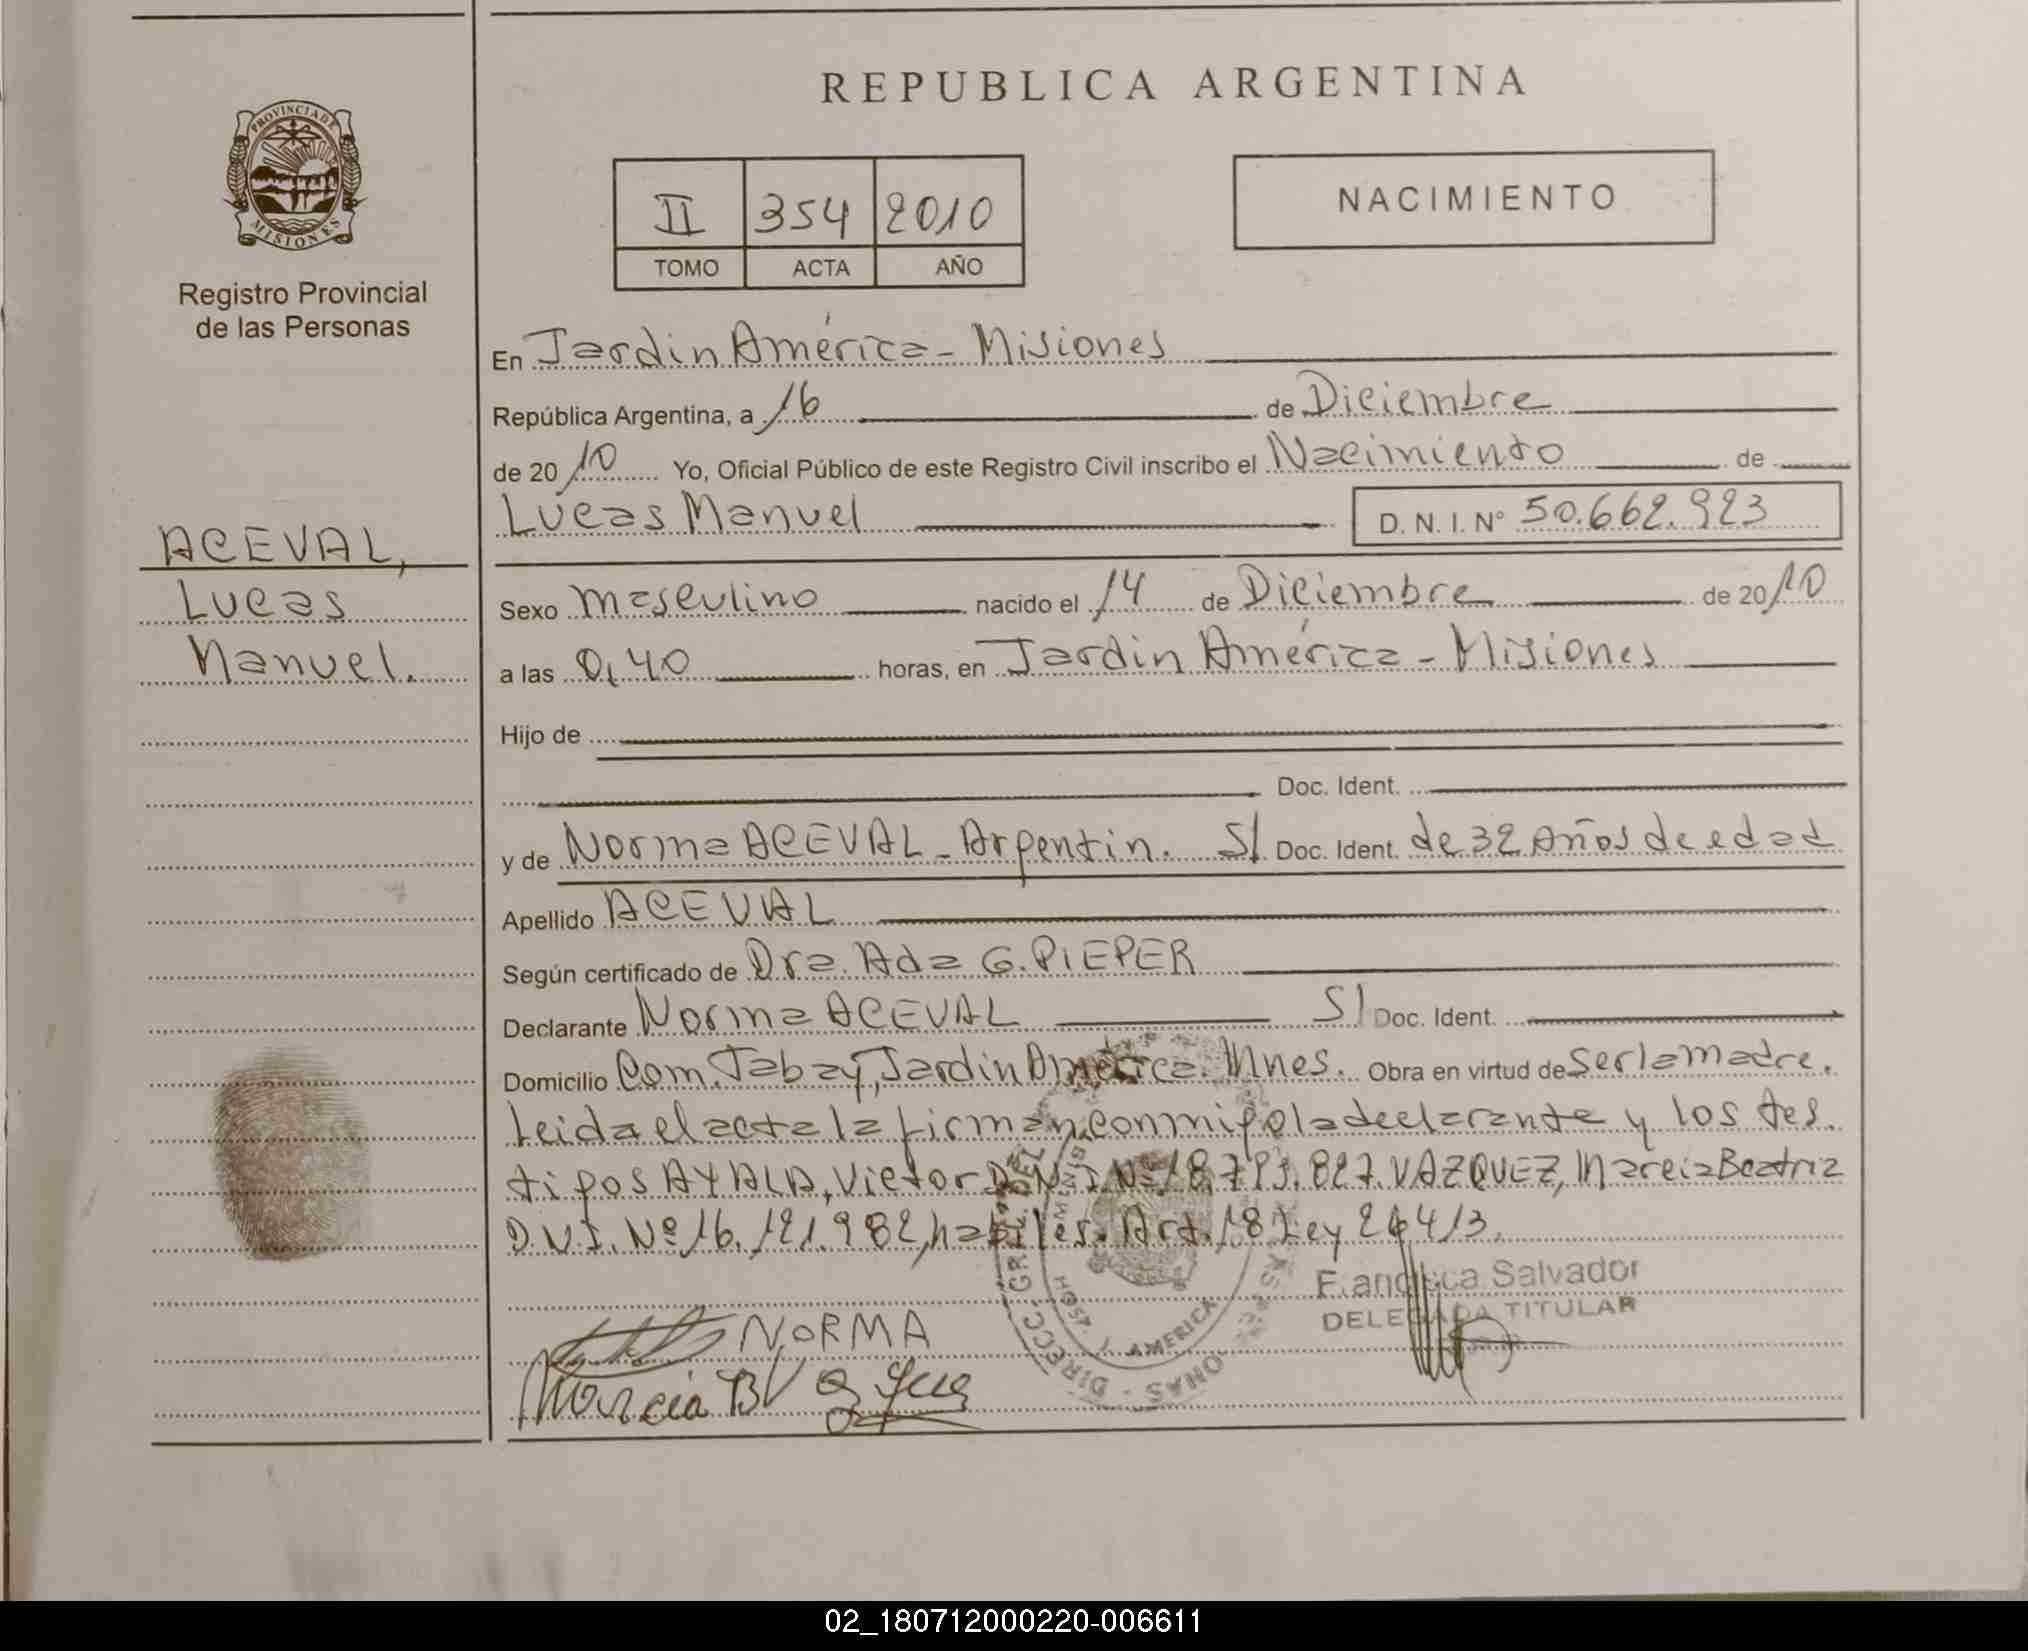 REPUBLICA ARGENTINA
PROVINCIA DE MISIONES
Registro Provincial
de las Personas
II 354 2010
TOMO ACTA AÑO
NACIMIENTO
En Jardin América - Misiones
República Argentina, a 16 de Diciembre
de 20 10 Yo, Oficial Público de este Registro Civil inscribo el Nacimiento de
Lucas Manuel D. N. I. N° 50.662.923
ACEVAL,
Lucas
Manuel.
Sexo masculino nacido el 14 de Diciembre de 20 10
a las 0,40 horas, en Jardin América - Misiones
Hijo de
Doc. Ident.
y de Norma ACEVAL - Argentin. S/ Doc. Ident. de 32 Años de edad
Apellido ACEVAL
Según certificado de Dra. Ada G. PIEPER
Declarante Norma ACEVAL S/ Doc. Ident.
Domicilio Com. Tabay, Jardin América. Mnes. Obra en virtud de ser la madre.
Leida el acta la firman conmigo la declarante y los tes.
tigos AYALA, Victor D.N.I. Nº 18.793.827. VAZQUEZ, Marcia Beatriz
D.N.I. Nº 16.121.982, habiles. Art. 18 Ley 26413.
Francisca Salvador
DELEGADA TITULAR
NORMA
Marcia B V
DIRECC. GRAL. DEL
AMERICA
02_180712000220-006611